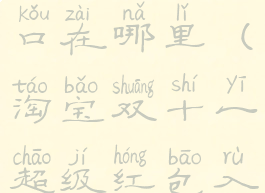 kǒu zài nǎ lǐ
口在哪里（
táo bǎo shuāng shí yī
淘宝双十一
chāo jí hóng bāo rù
超级红包入